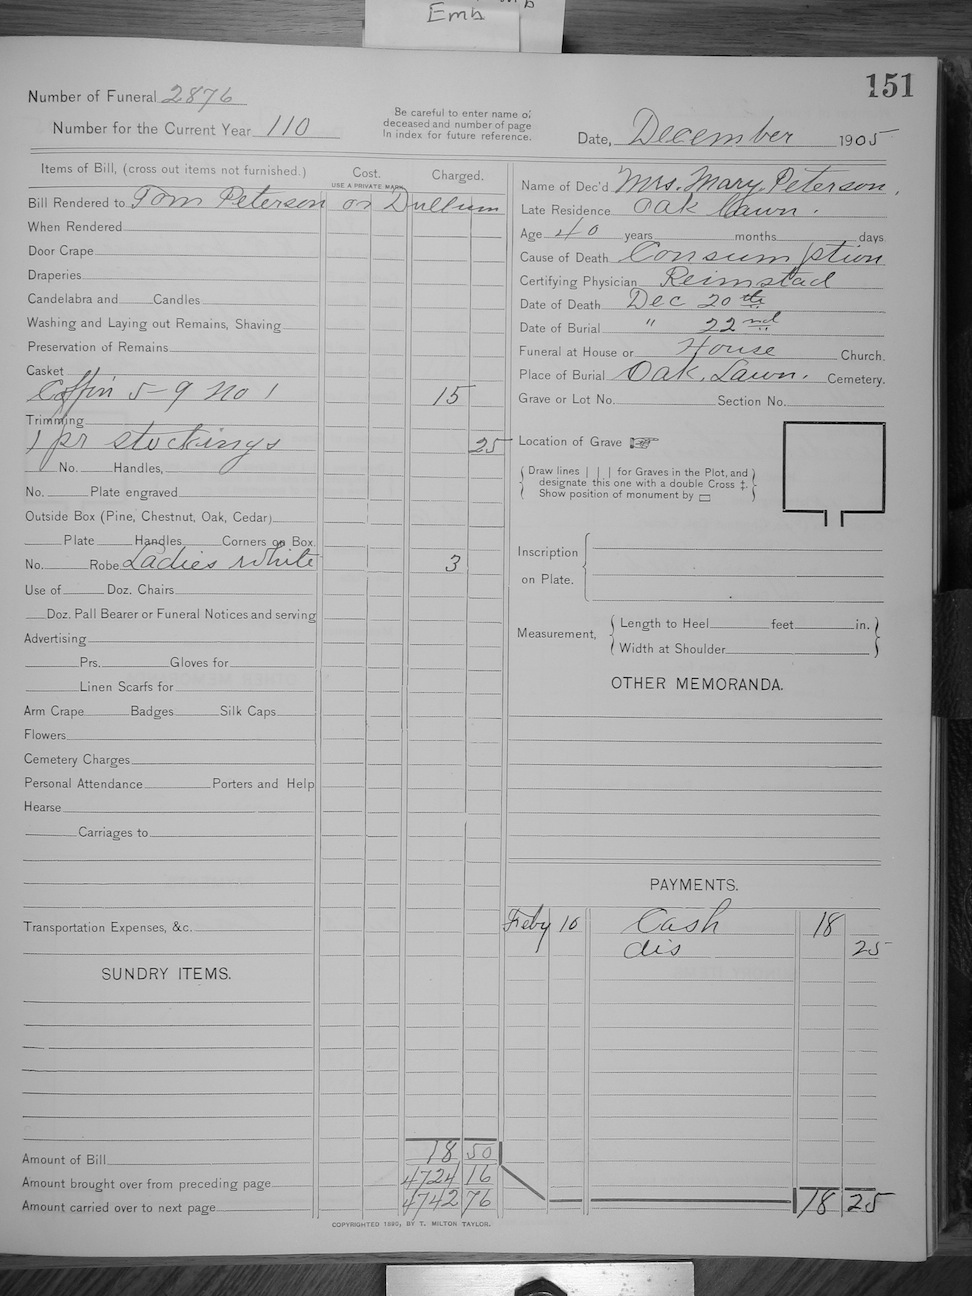 Emb
151
Number of Funeral 2876
Number for the Current Year 110
Be careful to enter name of
deceased and number of page
In index for future reference.
Date, December 1905
Items of Bill, (cross out items not furnished.) Cost. Charged.
USE A PRIVATE MARK
Bill Rendered to Tom Peterson or Dullum
When Rendered
Door Crape
Draperies
Candelabra and Candles
Washing and Laying out Remains, Shaving
Preservation of Remains
Casket
Coffin 5-9 no 1 15
Trimming
1 pr stockings 25
No. Handles,
No. Plate engraved
Outside Box (Pine, Chestnut, Oak, Cedar)
Plate Handles Corners on Box.
No. Robe Ladies White 3
Use of Doz. Chairs
Doz. Pall Bearer or Funeral Notices and serving
Advertising
Prs. Gloves for
Linen Scarfs for
Arm Crape Badges Silk Caps
Flowers
Cemetery Charges
Personal Attendance Porters and Help
Hearse
Carriages to
Transportation Expenses, &c.
SUNDRY ITEMS.
Amount of Bill 18 50
Amount brought over from preceding page 4724 16
Amount carried over to next page 4742 76
COPYRIGHTED 1895, BY T. MILTON TAYLOR.
Name of Dec'd Mrs. Mary Peterson.
Late Residence Oak Lawn.
Age 40 years months days
Cause of Death Consumption
Certifying Physician Reimstad
Date of Death Dec 20th
Date of Burial " 22nd
Funeral at House or House Church.
Place of Burial Oak Lawn. Cemetery.
Grave or Lot No. Section No.
Location of Grave
Draw lines | | | for Graves in the Plot, and
designate this one with a double Cross ‡.
Show position of monument by ▭
Inscription
on Plate.
Measurement, Length to Heel feet in.
Width at Shoulder
OTHER MEMORANDA.
PAYMENTS.
Feby 10 Cash 18
dis 25
18 25